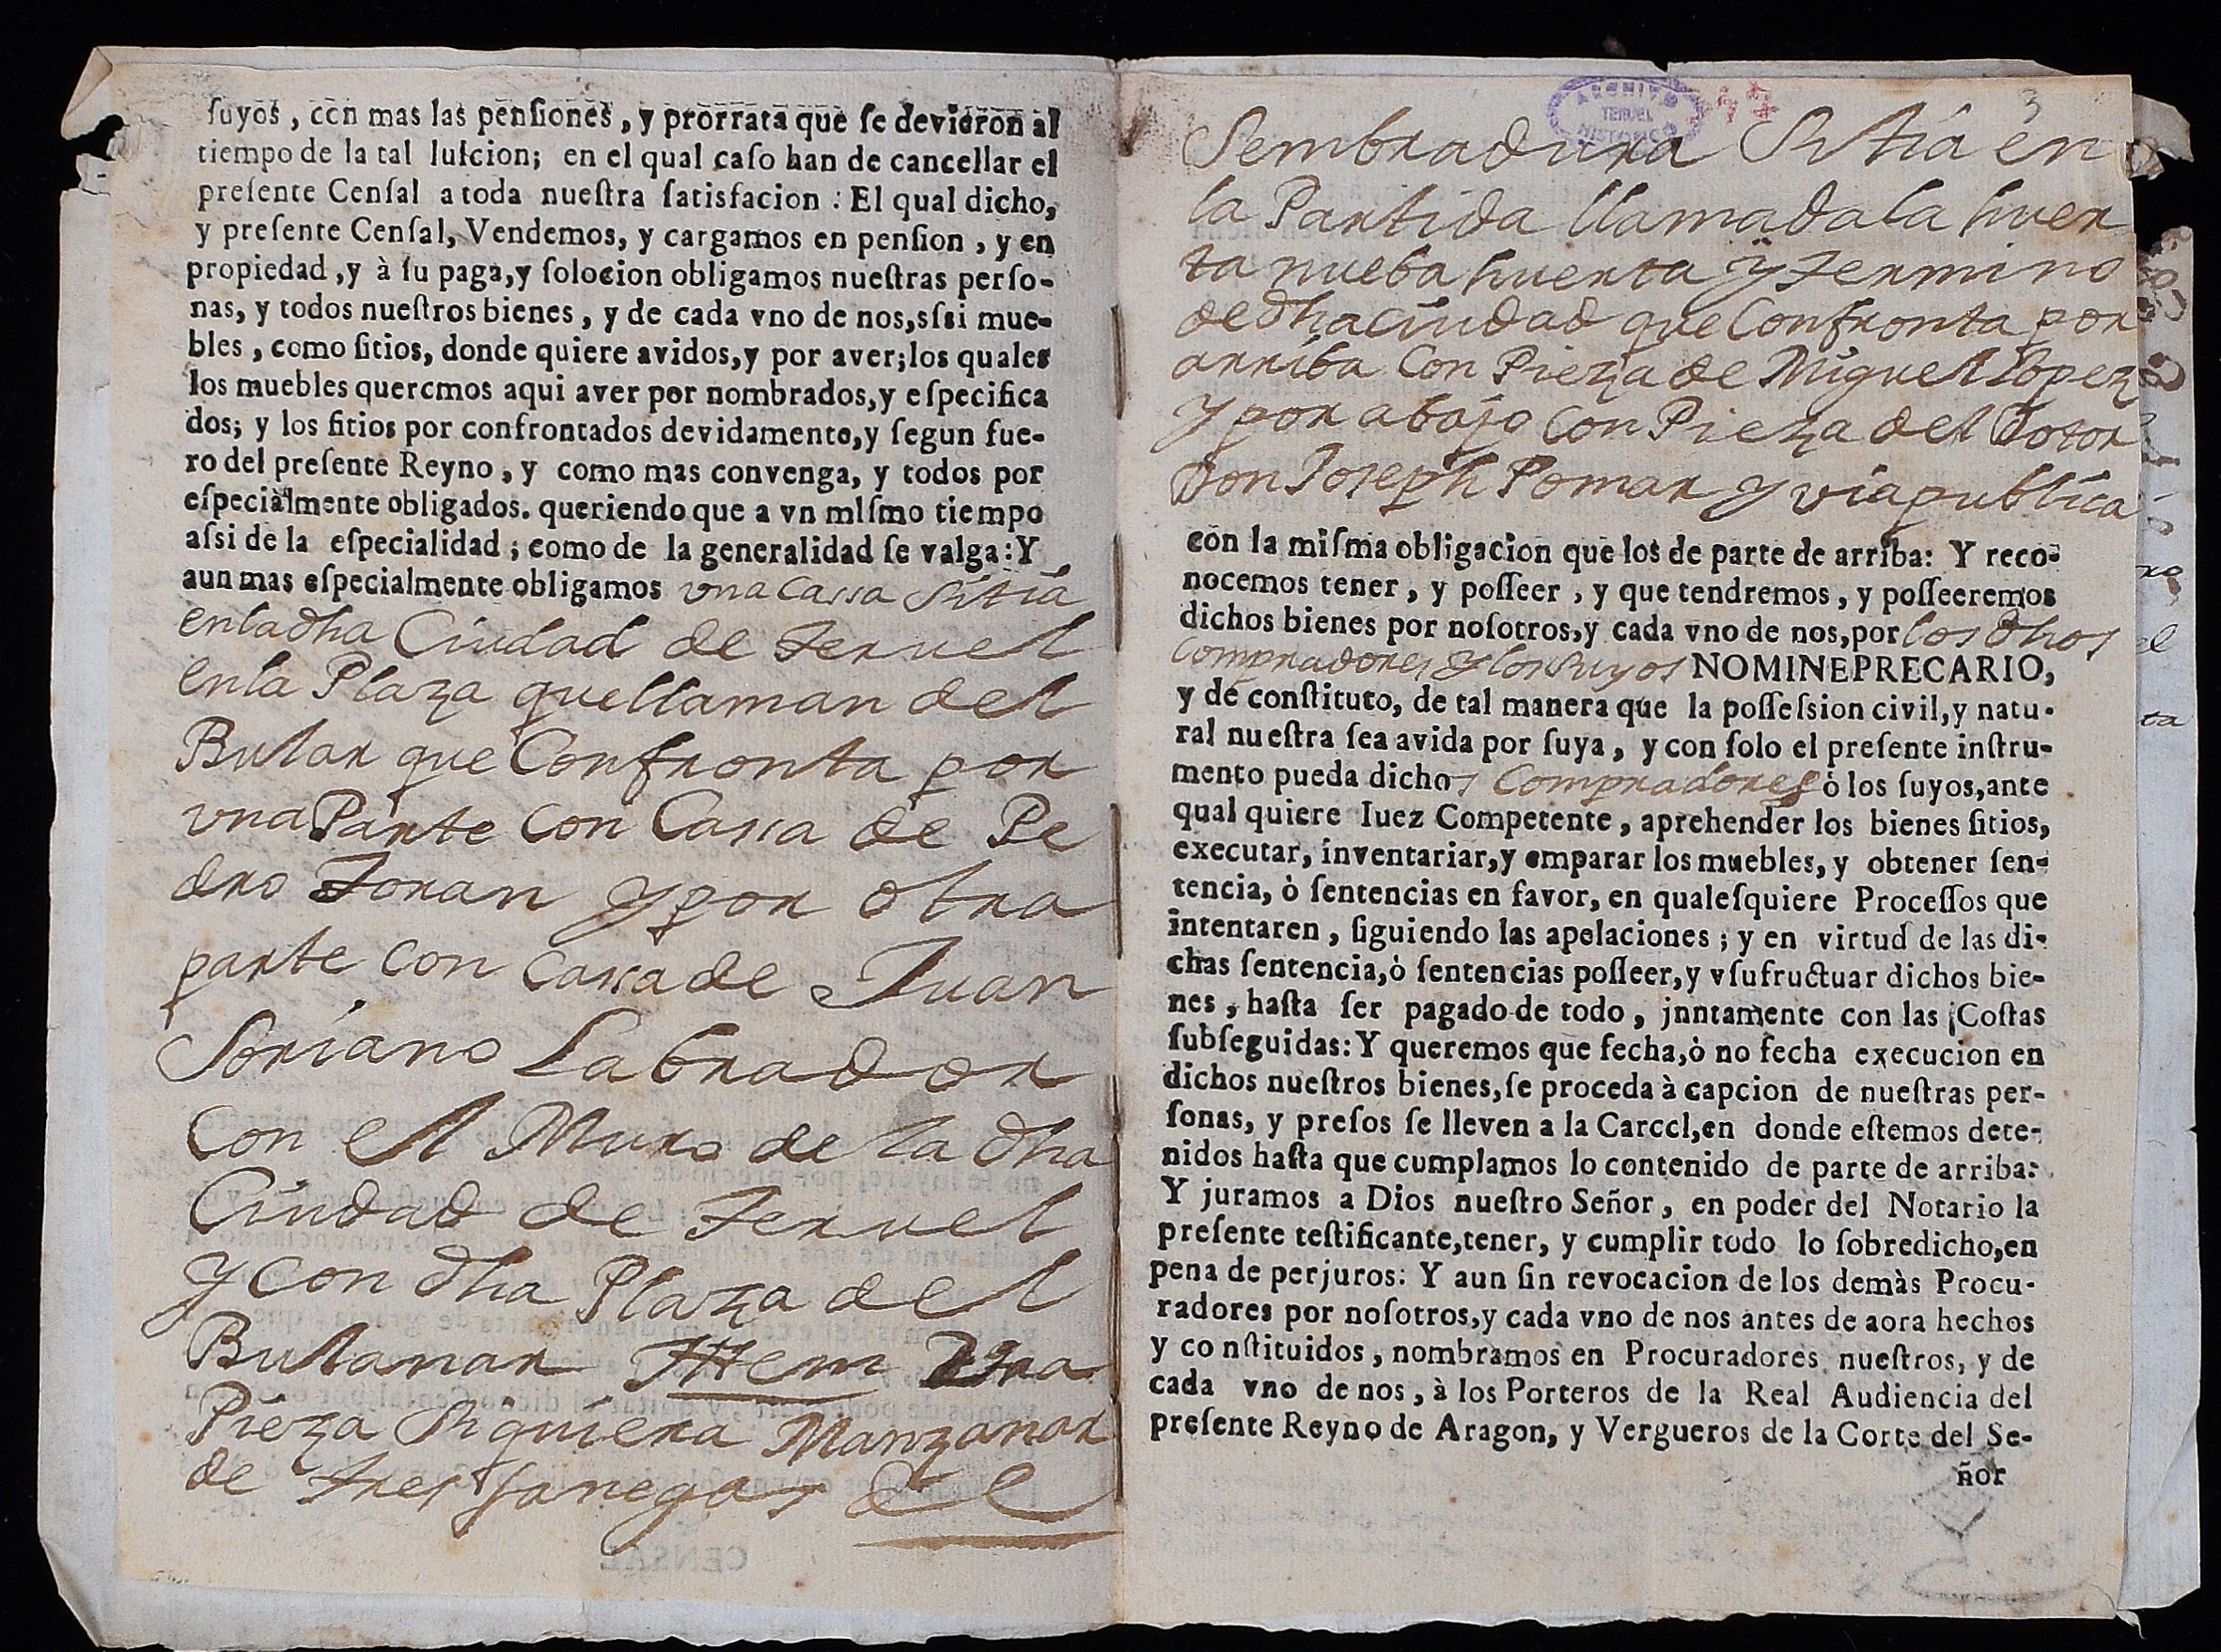 ſuyos, con mas las penſiones, y prorrata que ſe devieron al
tiempo de la tal luicion; en el qual caſo han de cancellar el
preſente Cenſal a toda nueſtra ſatisfacion: El qual dicho,
y preſente Cenſal, Vendemos, y cargamos en penſion, y en
propiedad, y à ſu paga, y ſolocion obligamos nueſtras perſo-
nas, y todos nueſtros bienes, y de cada vno de nos, aſsi mue-
bles, como ſitios, donde quiere avidos, y por aver; los quales
los muebles queremos aqui aver por nombrados, y eſpecifica
dos; y los ſitios por confrontados devidamente, y ſegun fue-
ro del preſente Reyno, y como mas convenga, y todos por
eſpecialmente obligados. queriendo que a vn mIſmo tiempo
aſsi de la eſpecialidad; como de la generalidad ſe valga: Y
aun mas eſpecialmente obligamos vna Cassa Sitia
en la dha Ciudad de Teruel
en la Plaza que llaman del
Butar que Confronta por
vna Parte Con Cassa de Pe
dro Toran y por otra
parte con Cassa de Juan
Soriano Labrador
Con el Muro de la dha
Ciudad de Teruel
y con dha Plaza del
Butanar Ittem
Pieza Siquiera Manzanar
de tres fanegas de
Sembradura Sitia en
la Partida llamada la huer
ta nueba huerta y termino
de dha ciudad que Confronta por
arriba Con Pieza de Miguel Lopez
y por abajo con Pieza del Dotor
Don Joseph Pomar y via publica
con la miſma obligacion que los de parte de arriba: Y reco-
nocemos tener, y poſſeer, y que tendremos, y poſſeeremos
dichos bienes por noſotros, y cada vno de nos, por los dhos
Compradores y los suyos NOMINE PRECARIO,
y de conſtituto, de tal manera que la poſſeſsion civil, y natu-
ral nueſtra ſea avida por ſuya, y con ſolo el preſente inſtru-
mento pueda dichos Compradores ò los ſuyos, ante
qual quiere Iuez Competente, aprehender los bienes ſitios,
executar, inventariar, y emparar los muebles, y obtener ſen-
tencia, ò ſentencias en favor, en qualeſquiere Proceſſos que
intentaren, ſiguiendo las apelaciones; y en virtud de las di-
chas ſentencia, ò ſentencias poſſeer, y vſufructuar dichos bie-
nes, haſta ſer pagado de todo, jnntamente con las Coſtas
ſubſeguidas: Y queremos que fecha, ò no fecha execucion en
dichos nueſtros bienes, ſe proceda à capcion de nueſtras per-
ſonas, y preſos ſe lleven a la Carccl, en donde eſtemos dete-
nidos haſta que cumplamos lo contenido de parte de arriba:
Y juramos a Dios nueſtro Señor, en poder del Notario la
preſente teſtificante, tener, y cumplir todo lo ſobredicho, en
pena de perjuros: Y aun ſin revocacion de los demàs Procu-
radores por noſotros, y cada vno de nos antes de aora hechos
y conſtituidos, nombramos en Procuradores nueſtros, y de
cada vno de nos, à los Porteros de la Real Audiencia del
preſente Reyno de Aragon, y Vergueros de la Corte del Se-
ñor
ARCHIVO
TERUEL
HISTORICO